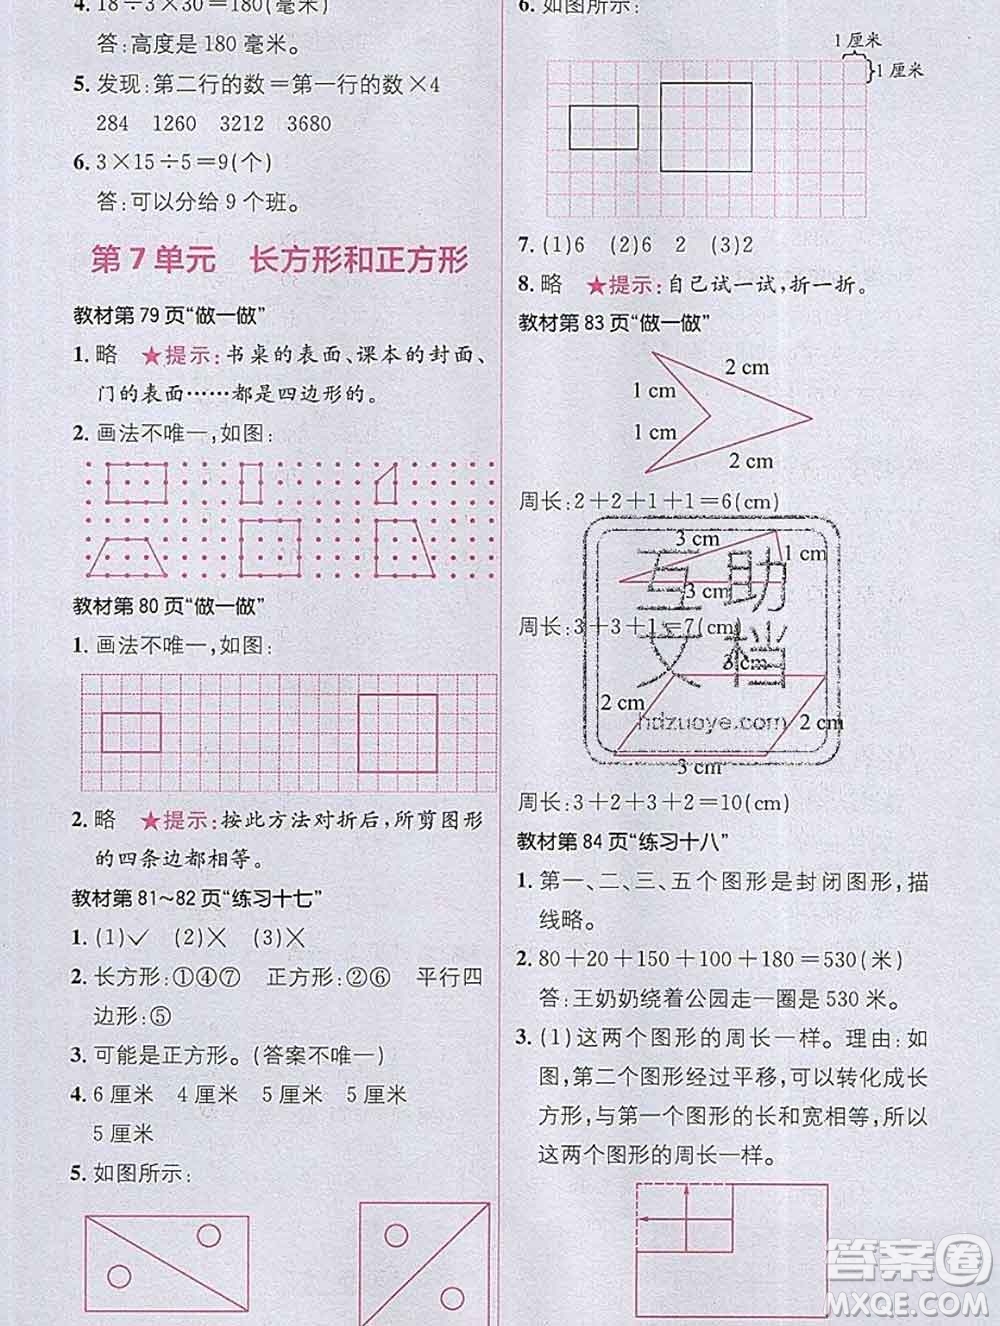 4. 18÷3×30=180(毫米)
答:高度是180毫米。
5. 发现:第二行的数=第一行的数×4
284 1260 3212 3680
6. 3×15÷5=9(个)
答:可以分给9个班。
第7单元 长方形和正方形
教材第79页“做一做”
1. 略 ★提示:书桌的表面、课本的封面、
门的表面……都是四边形的。
2. 画法不唯一,如图:
教材第80页“做一做”
1. 画法不唯一,如图:
2. 略 ★提示:按此方法对折后,所剪图形
的四条边都相等。
教材第81~82页“练习十七”
1. (1)✓ (2)× (3)×
2. 长方形:①④⑦ 正方形:②⑥ 平行四
边形:⑤
3. 可能是正方形。(答案不唯一)
4. 6厘米 4厘米 5厘米
5厘米
5. 如图所示:
6. 如图所示:
1厘米
1厘米
7. (1)6 (2)6 2 (3)2
8. 略 ★提示:自己试一试,折一折。
教材第83页“做一做”
2 cm
1 cm
1 cm
2 cm
周长:2+2+1+1=6(cm)
3 cm
1 cm
3 cm
周长:3+3+1=7(cm)
3 cm
2 cm
2 cm
3 cm
周长:3+2+3+2=10(cm)
互助
文档
hdzuoye.com
教材第84页“练习十八”
1. 第一、二、三、五个图形是封闭图形,描
线略。
2. 80+20+150+100+180=530(米)
答:王奶奶绕着公园走一圈是530米。
3. (1)这两个图形的周长一样。理由:如
图,第二个图形经过平移,可以转化成长
方形,与第一个图形的长和宽相等,所以
这两个图形的周长一样。
答案圈
MXQE.COM